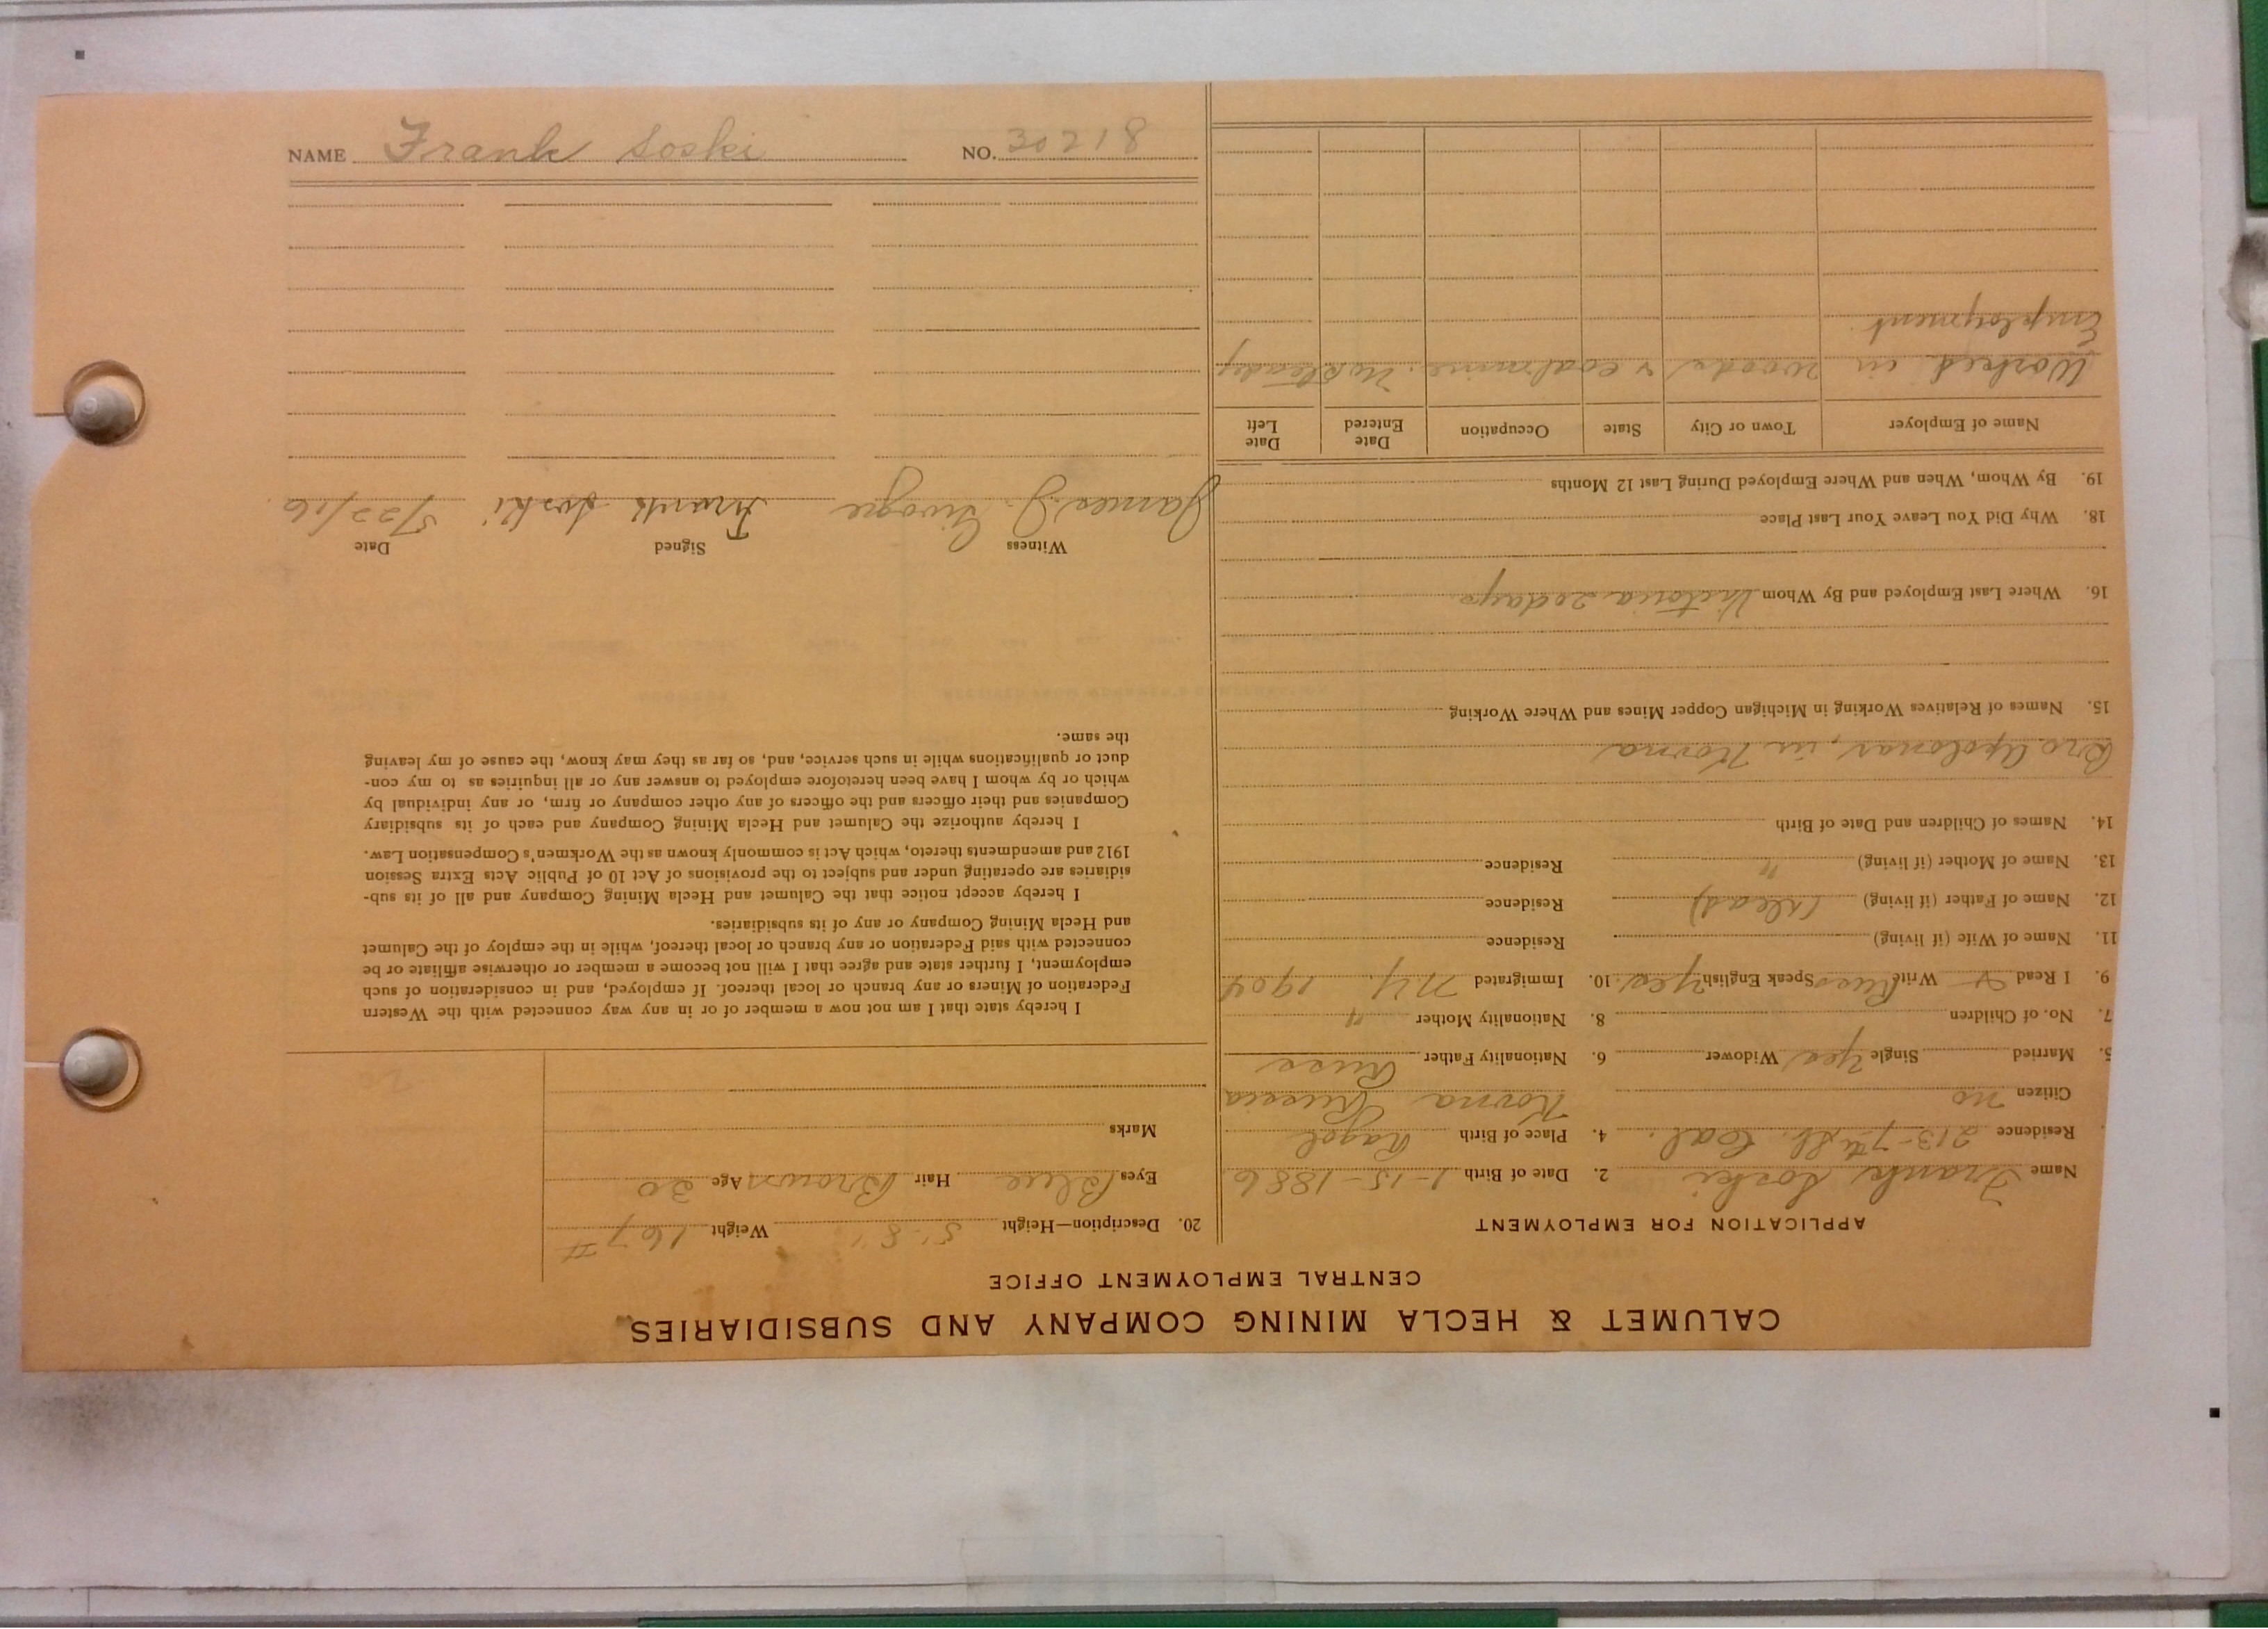 NAME Frank Soski NO. 30218
CALUMET & HECLA MINING COMPANY AND SUBSIDIARIES
CENTRAL EMPLOYMENT OFFICE
APPLICATION FOR EMPLOYMENT
Name Frank Soski 2. Date of Birth 1-15-1886
Residence 213-7th St. Cal. 4. Place of Birth
Citizen no Kovna Russia
5. Married Single Yes Widower 6. Nationality Father Russ
7. No. of Children 8. Nationality Mother "
9. I Read & Write Russ Speak English Yes 10. Immigrated N.Y. 1904
11. Name of Wife (if living) Residence
12. Name of Father (if living) (dead) Residence
13. Name of Mother (if living) " Residence
14. Names of Children and Date of Birth
Bro. Apolonas, in Kovna
15. Names of Relatives Working in Michigan Copper Mines and Where Working
16. Where Last Employed and By Whom Victoria 20 days.
18. Why Did You Leave Your Last Place
19. By Whom, When and Where Employed During Last 12 Months
Name of Employer Town or City State Occupation Date Entered Date Left
Worked in woods & coal mine. No steady
Employment.
20. Description—Height 5' 8" Weight 167 #
Eyes Blue Hair Brown Age 30
Marks
I hereby state that I am not now a member of or in any way connected with the Western
Federation of Miners or any branch or local thereof. If employed, and in consideration of such
employment, I further state and agree that I will not become a member or otherwise affiliate or be
connected with said Federation or any branch or local thereof, while in the employ of the Calumet
and Hecla Mining Company or any of its subsidiaries.
I hereby accept notice that the Calumet and Hecla Mining Company and all of its sub-
sidiaries are operating under and subject to the provisions of Act 10 of Public Acts Extra Session
1912 and amendments thereto, which Act is commonly known as the Workmen's Compensation Law.
I hereby authorize the Calumet and Hecla Mining Company and each of its subsidiary
Companies and their officers and the officers of any other company or firm, or any individual by
which or by whom I have been heretofore employed to answer any or all inquiries as to my con-
duct or qualifications while in such service, and, so far as they may know, the cause of my leaving
the same.
Witness Signed Date
James J. Frank Soski 5/22/16